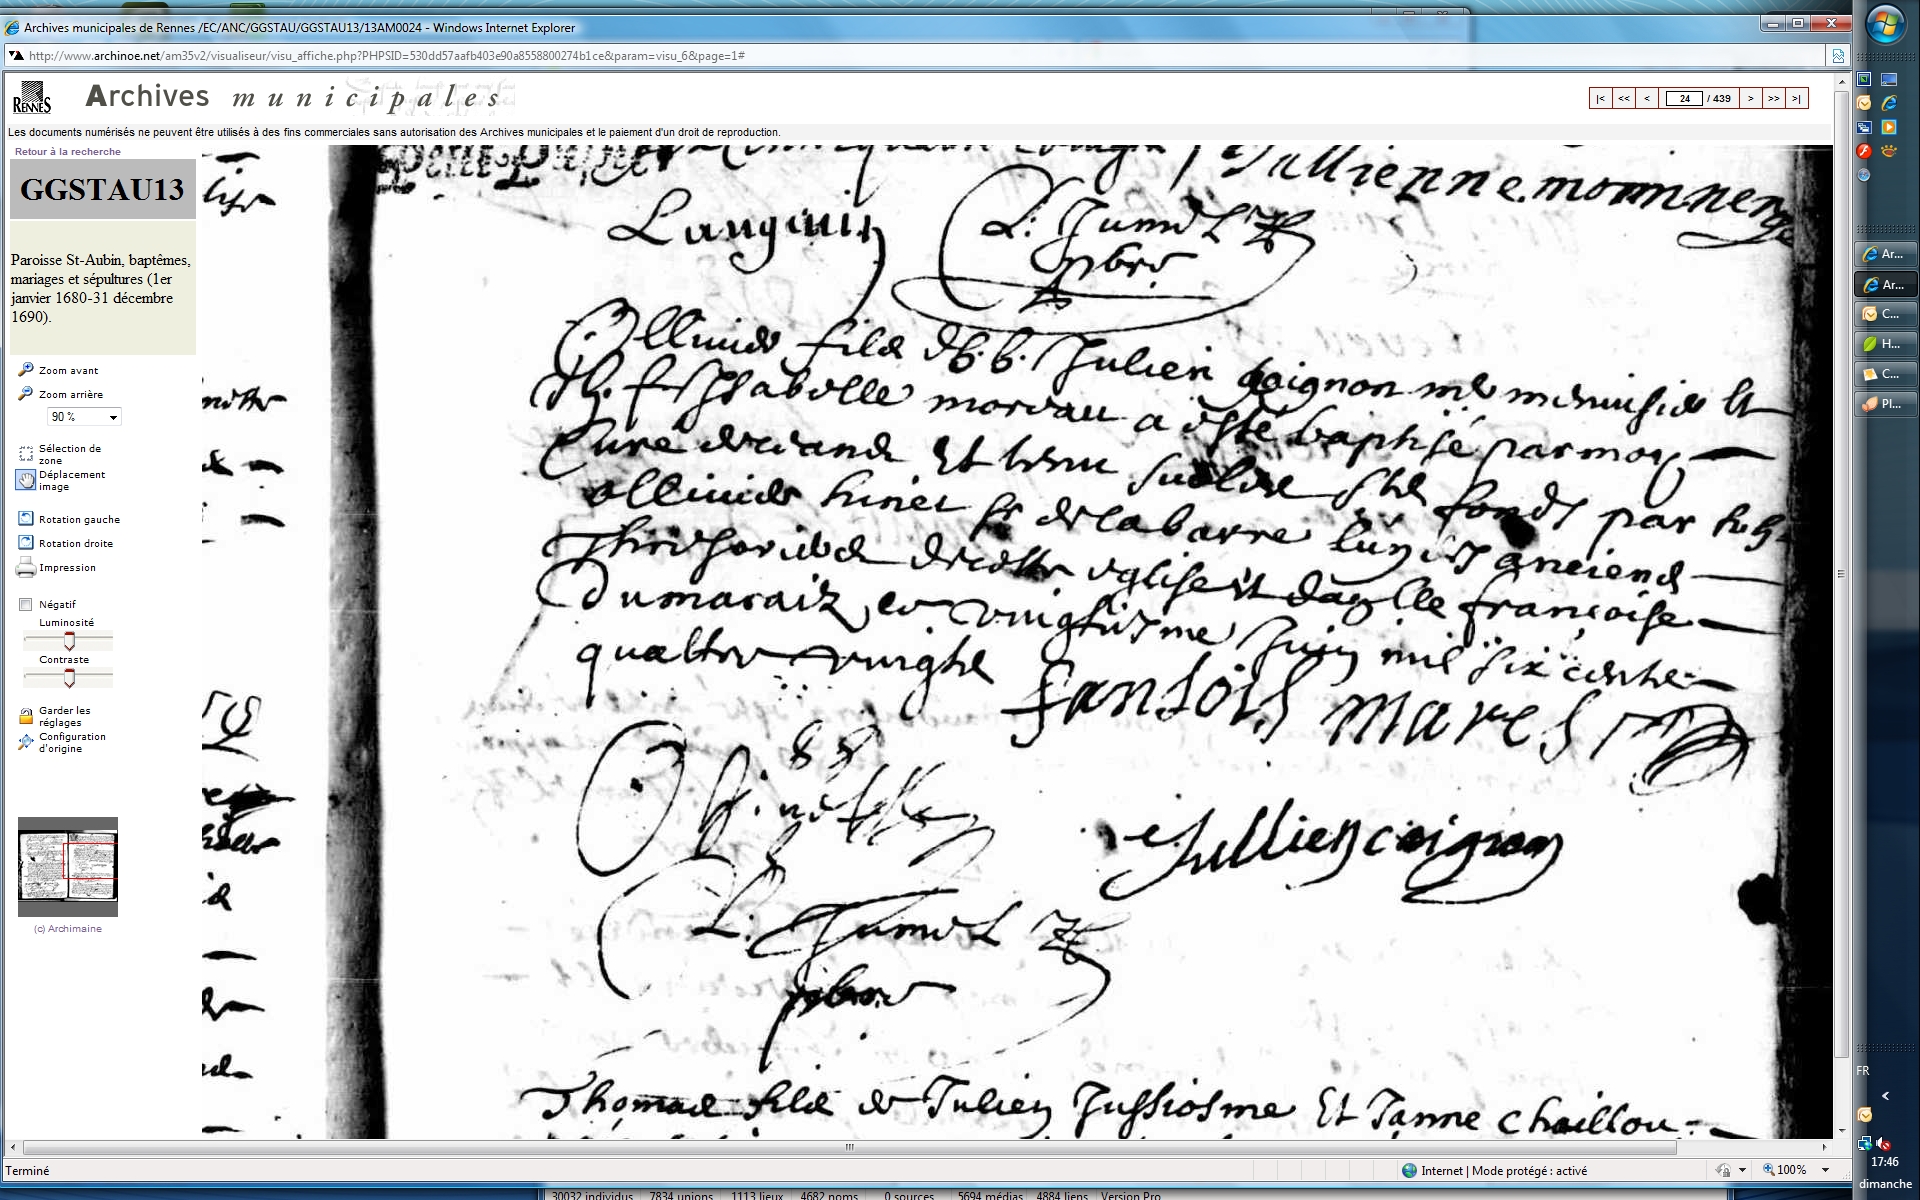 Archives municipales de Rennes /EC/ANC/GGSTAU/GGSTAU13/13AM0024 - Windows Internet Explorer
http://www.archinoe.net/am35v2/visualiseur/visu_affiche.php?PHPSID=530dd57aafb403e90a8558800274b1ce&param=visu_6&page=1#
RENNES
Archives municipales
|< << < 24 / 439 > >> >|
Les documents numérisés ne peuvent être utilisés à des fins commerciales sans autorisation des Archives municipales et le paiement d'un droit de reproduction.
Retour à la recherche
GGSTAU13
Paroisse St-Aubin, baptêmes,
mariages et sépultures (1er
janvier 1680-31 décembre
1690).
Zoom avant
Zoom arrière
90 %
Sélection de
zone
Déplacement
image
Rotation gauche
Rotation droite
Impression
Négatif
Luminosité
Contraste
Garder les
réglages
Configuration
d'origine
(c) Archimaine
Jullienne
Ollivier fils de h. h. Julien Coignon me menuisier et
h. f. Ysabelle moreau a esté baptisé par moy
Curé et tenu sur les sts fonds par
ollivier hinet sr de la barre l'un des anciens
Thresoriers de cette eglise et damlle françoise
Dumaraiz ce vingtiesme juin mil six cents
quattre vingts
fansois mares
Jullien coignon
Thomas fils de Julien Et Janne chaillou
Terminé
Internet | Mode protégé : activé
100%
30032 individus 7834 unions 1113 lieux 4682 noms 0 sources 5694 médias 4884 liens Version Pro
Ar...
Ar...
C...
H...
C...
Pl...
FR
17:46
dimanche